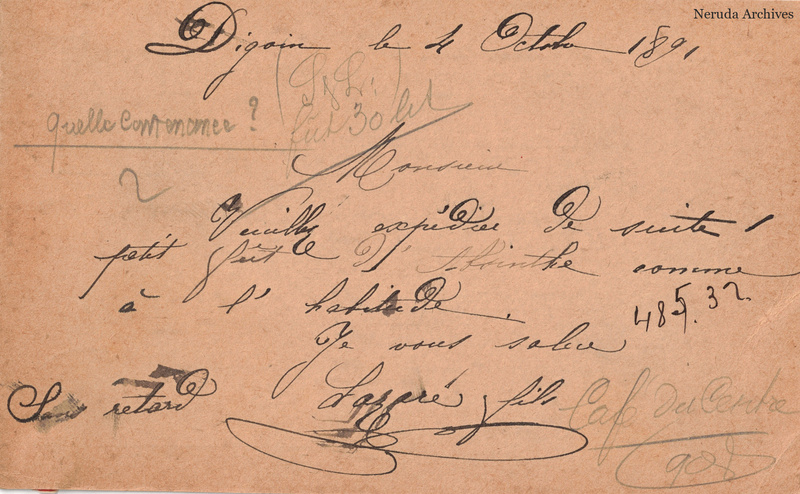 Neruda Archives
Digoin le 4 Octobre 1891
(S/L:)
fût 30 lit
quelle contenance ?
Monsieur
Veuillez expédier de suite 1
petit fût d'Absinthe comme
à l'habitude.
485.32
Je vous salue
Sans retard
fils
Café du Centre